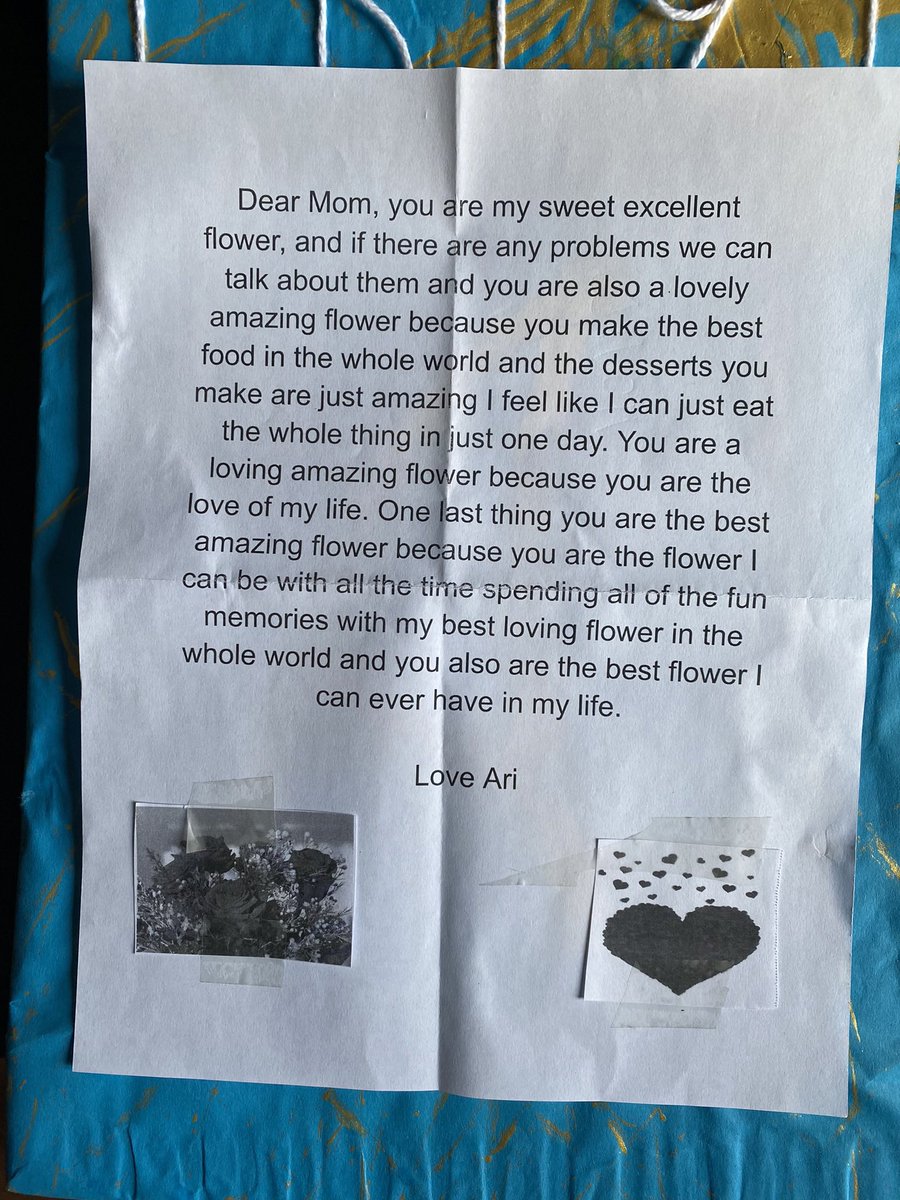 Dear Mom, you are my sweet excellent
flower, and if there are any problems we can
talk about them and you are also a lovely
amazing flower because you make the best
food in the whole world and the desserts you
make are just amazing I feel like I can just eat
the whole thing in just one day. You are a
loving amazing flower because you are the
love of my life. One last thing you are the best
amazing flower because you are the flower I
can be with all the time spending all of the fun
memories with my best loving flower in the
whole world and you also are the best flower I
can ever have in my life.
Love Ari